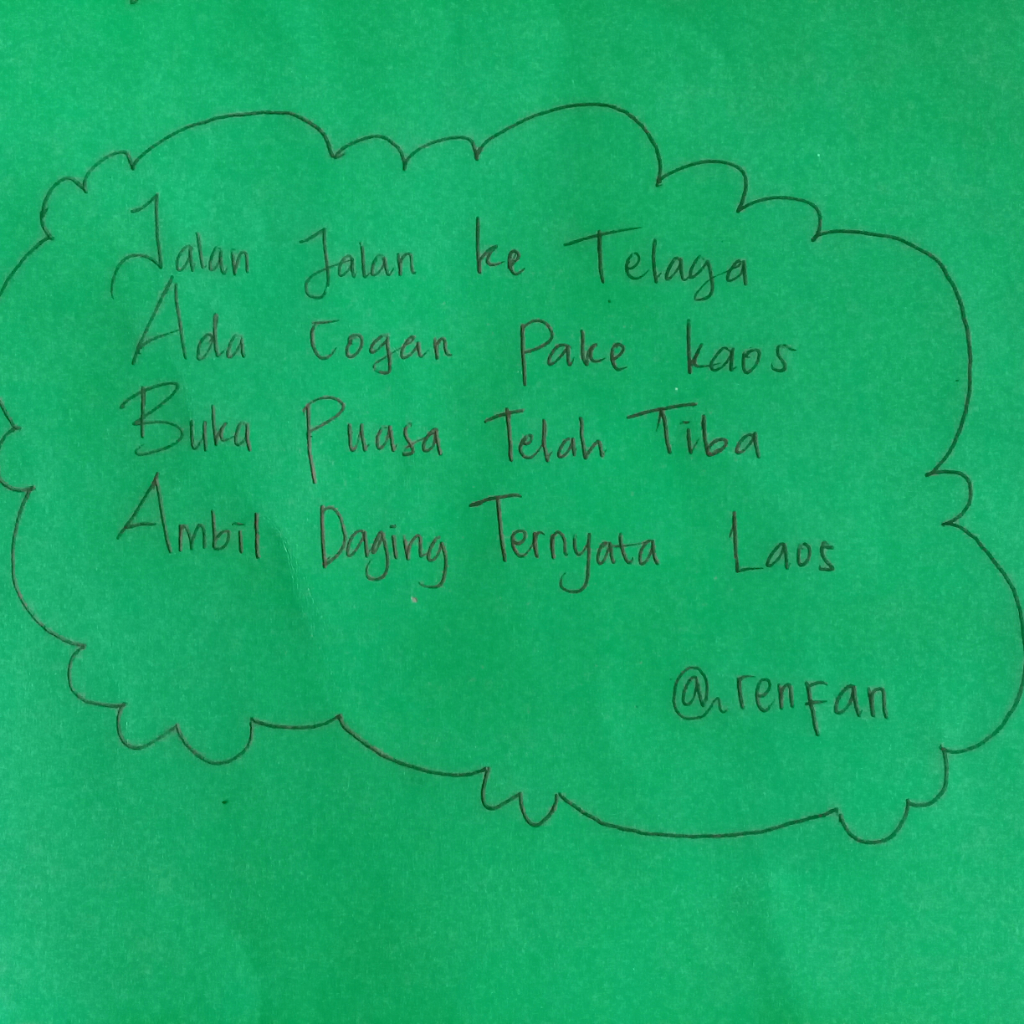 Jalan Jalan ke Telaga
Ada Cogan Pake kaos
Buka Puasa Telah Tiba
Ambil Daging Ternyata Laos
@renfan